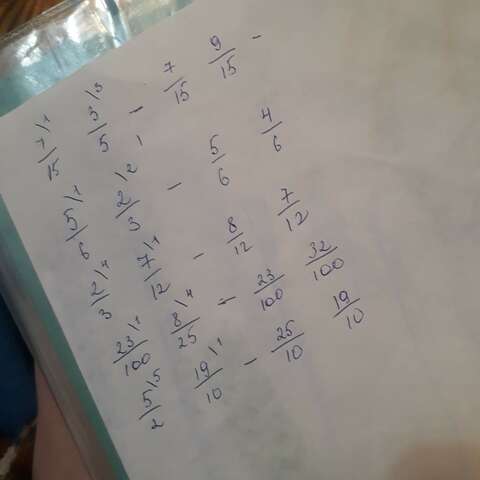 7/15\1 3/5\3 - 7/15 9/15 -
5/6\1 2/3\2 - 5/6 4/6
2/3\4 7/12\1 - 8/12 7/12
23/100\1 8/25\4 - 23/100 32/100
5/2\5 19/10\1 - 25/10 19/10